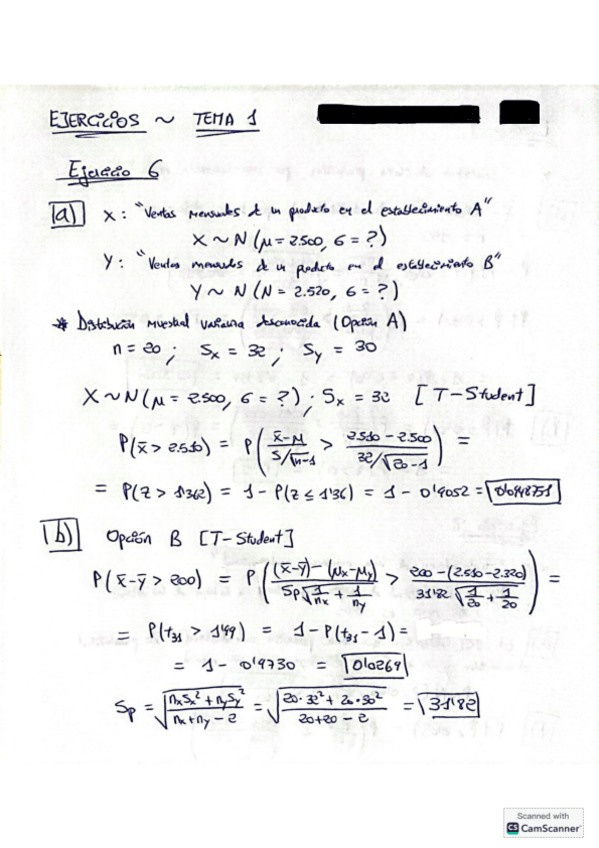 EJERCICIOS ~ TEMA 1
Ejercicio 6
a) X: "Ventas mensuales de un producto en el establecimiento A"
X ~ N (μ = 2.500, σ = ?)
Y: "Ventas mensuales de un producto en el establecimiento B"
Y ~ N (N = 2.520, σ = ?)
* Distribución muestral varianza desconocida (Opción A)
n = 20 ; Sx = 32 ; Sy = 30
X ~ N (μ = 2.500, σ = ?) ; Sx = 32 [T-Student]
P(x̄ > 2.510) = P( (x̄-μ)/(S/√n-1) > (2.510 - 2.500)/(32/√20-1) ) =
= P(Z > 1'362) = 1 - P(Z ≤ 1'36) = 1 - 0'9052 = 0'0948751
b) Opción B [T-Student]
P(x̄-ȳ > 200) = P( ((x̄-ȳ)-(μx-μy))/(Sp√(1/nx + 1/ny)) > (200-(2.510-2.320))/(31'82√(1/20 + 1/20)) ) =
= P(t31 > 1'99) = 1 - P(t31 - 1) =
= 1 - 0'9730 = 0'0269
Sp = √((nxSx² + nySy²)/(nx+ny-2)) = √((20·32² + 20·30²)/(20+20-2)) = 31'82
Scanned with
CS CamScanner